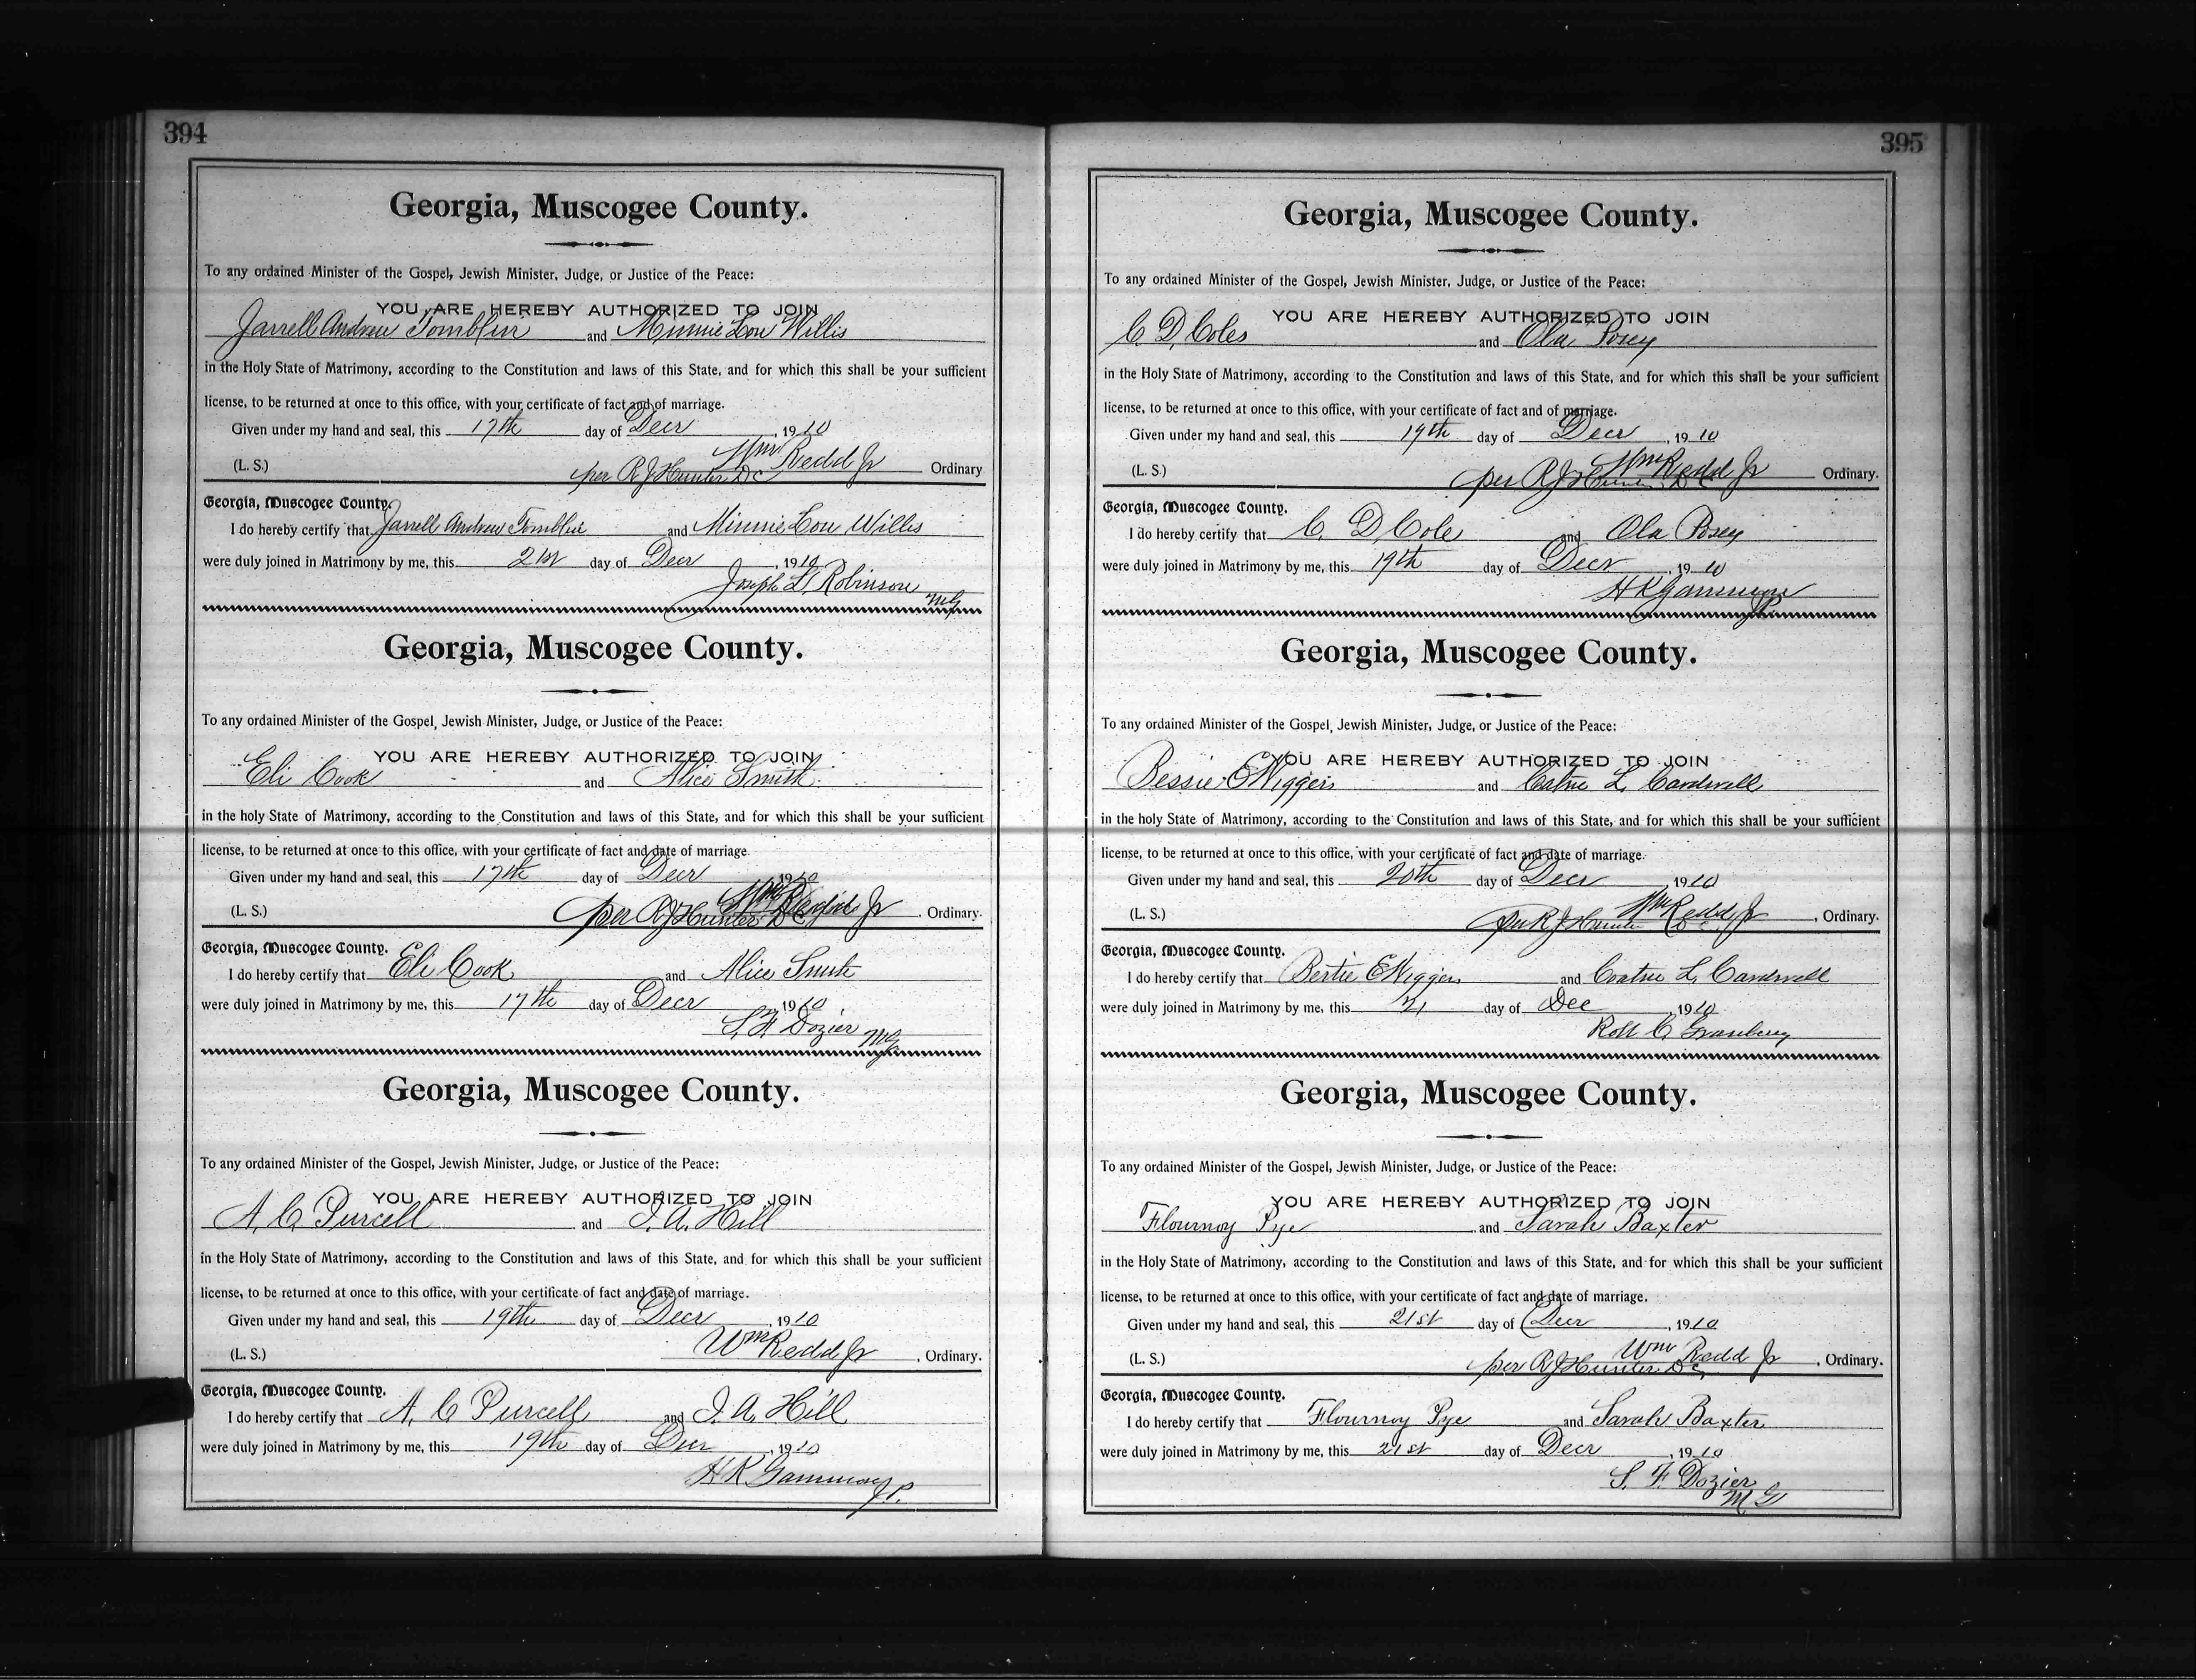 394
Georgia, Muscogee County.
To any ordained Minister of the Gospel, Jewish Minister, Judge, or Justice of the Peace:
YOU ARE HEREBY AUTHORIZED TO JOIN
Jarrell Andrew Tomblin and Minnie Lou Willis
in the Holy State of Matrimony, according to the Constitution and laws of this State, and for which this shall be your sufficient
license, to be returned at once to this office, with your certificate of fact and of marriage.
Given under my hand and seal, this 17th day of Decr , 1910
Wm Redd Jr
(L. S.) per R J Hunter D C Ordinary
Georgia, Muscogee County.
I do hereby certify that Jarrell Andrew Tomblin and Minnie Lou Willis
were duly joined in Matrimony by me, this 21st day of Decr , 1910
Joseph L. Robinson
MG
Georgia, Muscogee County.
To any ordained Minister of the Gospel, Jewish Minister, Judge, or Justice of the Peace:
YOU ARE HEREBY AUTHORIZED TO JOIN
Eli Cook and Alice Smith
in the holy State of Matrimony, according to the Constitution and laws of this State, and for which this shall be your sufficient
license, to be returned at once to this office, with your certificate of fact and date of marriage.
Given under my hand and seal, this 17th day of Decr 1910
(L. S.) per R J Hunter D C Jr , Ordinary.
Georgia, Muscogee County.
I do hereby certify that Eli Cook and Alice Smith
were duly joined in Matrimony by me, this 17th day of Decr , 1910
S. F. Dozier MG
Georgia, Muscogee County.
To any ordained Minister of the Gospel, Jewish Minister, Judge, or Justice of the Peace:
YOU ARE HEREBY AUTHORIZED TO JOIN
A. C. Purcell and I. A. Hill
in the Holy State of Matrimony, according to the Constitution and laws of this State, and for which this shall be your sufficient
license, to be returned at once to this office, with your certificate of fact and date of marriage.
Given under my hand and seal, this 19th day of Decr , 1910
(L. S.) Wm Redd Jr , Ordinary.
Georgia, Muscogee County.
I do hereby certify that A. C Purcell and I. A. Hill
were duly joined in Matrimony by me, this 19th day of Decr , 1910
H K Gammon
J.P.
395
Georgia, Muscogee County.
To any ordained Minister of the Gospel, Jewish Minister, Judge, or Justice of the Peace:
YOU ARE HEREBY AUTHORIZED TO JOIN
C. D. Coles and Ola Posey
in the Holy State of Matrimony, according to the Constitution and laws of this State, and for which this shall be your sufficient
license, to be returned at once to this office, with your certificate of fact and of marriage.
Given under my hand and seal, this 19th day of Decr , 1910
Wm Redd Jr
(L. S.) per R J Hunter D C Ordinary.
Georgia, Muscogee County.
I do hereby certify that C. D Cole and Ola Posey
were duly joined in Matrimony by me, this 19th day of Decr , 1910
H K Gammon
Georgia, Muscogee County.
To any ordained Minister of the Gospel, Jewish Minister, Judge, or Justice of the Peace:
YOU ARE HEREBY AUTHORIZED TO JOIN
Bessie E Wiggers and L. Cardwell
in the holy State of Matrimony, according to the Constitution and laws of this State, and for which this shall be your sufficient
license, to be returned at once to this office, with your certificate of fact and date of marriage.
Given under my hand and seal, this 20th day of Decr , 1910
Wm Redd Jr
(L. S.) per R J Hunter D C , Ordinary.
Georgia, Muscogee County.
I do hereby certify that Bertie E Wiggers and L. Cardwell
were duly joined in Matrimony by me, this 21 day of Dec , 1910
Robt C Granberry
Georgia, Muscogee County.
To any ordained Minister of the Gospel, Jewish Minister, Judge, or Justice of the Peace:
YOU ARE HEREBY AUTHORIZED TO JOIN
Flournoy Pye and Sarah Baxter
in the Holy State of Matrimony, according to the Constitution and laws of this State, and for which this shall be your sufficient
license, to be returned at once to this office, with your certificate of fact and date of marriage.
Given under my hand and seal, this 21st day of Decr , 1910
Wm Redd Jr
(L. S.) per R J Hunter D C , Ordinary.
Georgia, Muscogee County.
I do hereby certify that Flournoy Pye and Sarah Baxter
were duly joined in Matrimony by me, this 21st day of Decr , 1910
S. F. Dozier
M G